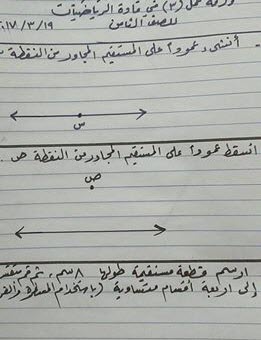 ورقة عمل (٣) في مادة الرياضيات
للصف الثامن ١٧/٣/١٩
- أنشىء عموداً على المستقيم المجاور من النقطة س
س
اسقط عموداً على المستقيم المجاور من النقطة ص.
ص
ارسم قطعة مستقيمة طولها ٨ سم، ثم قم
إلى اربعة أقسام متساوية (باستخدام المسطرة والفر